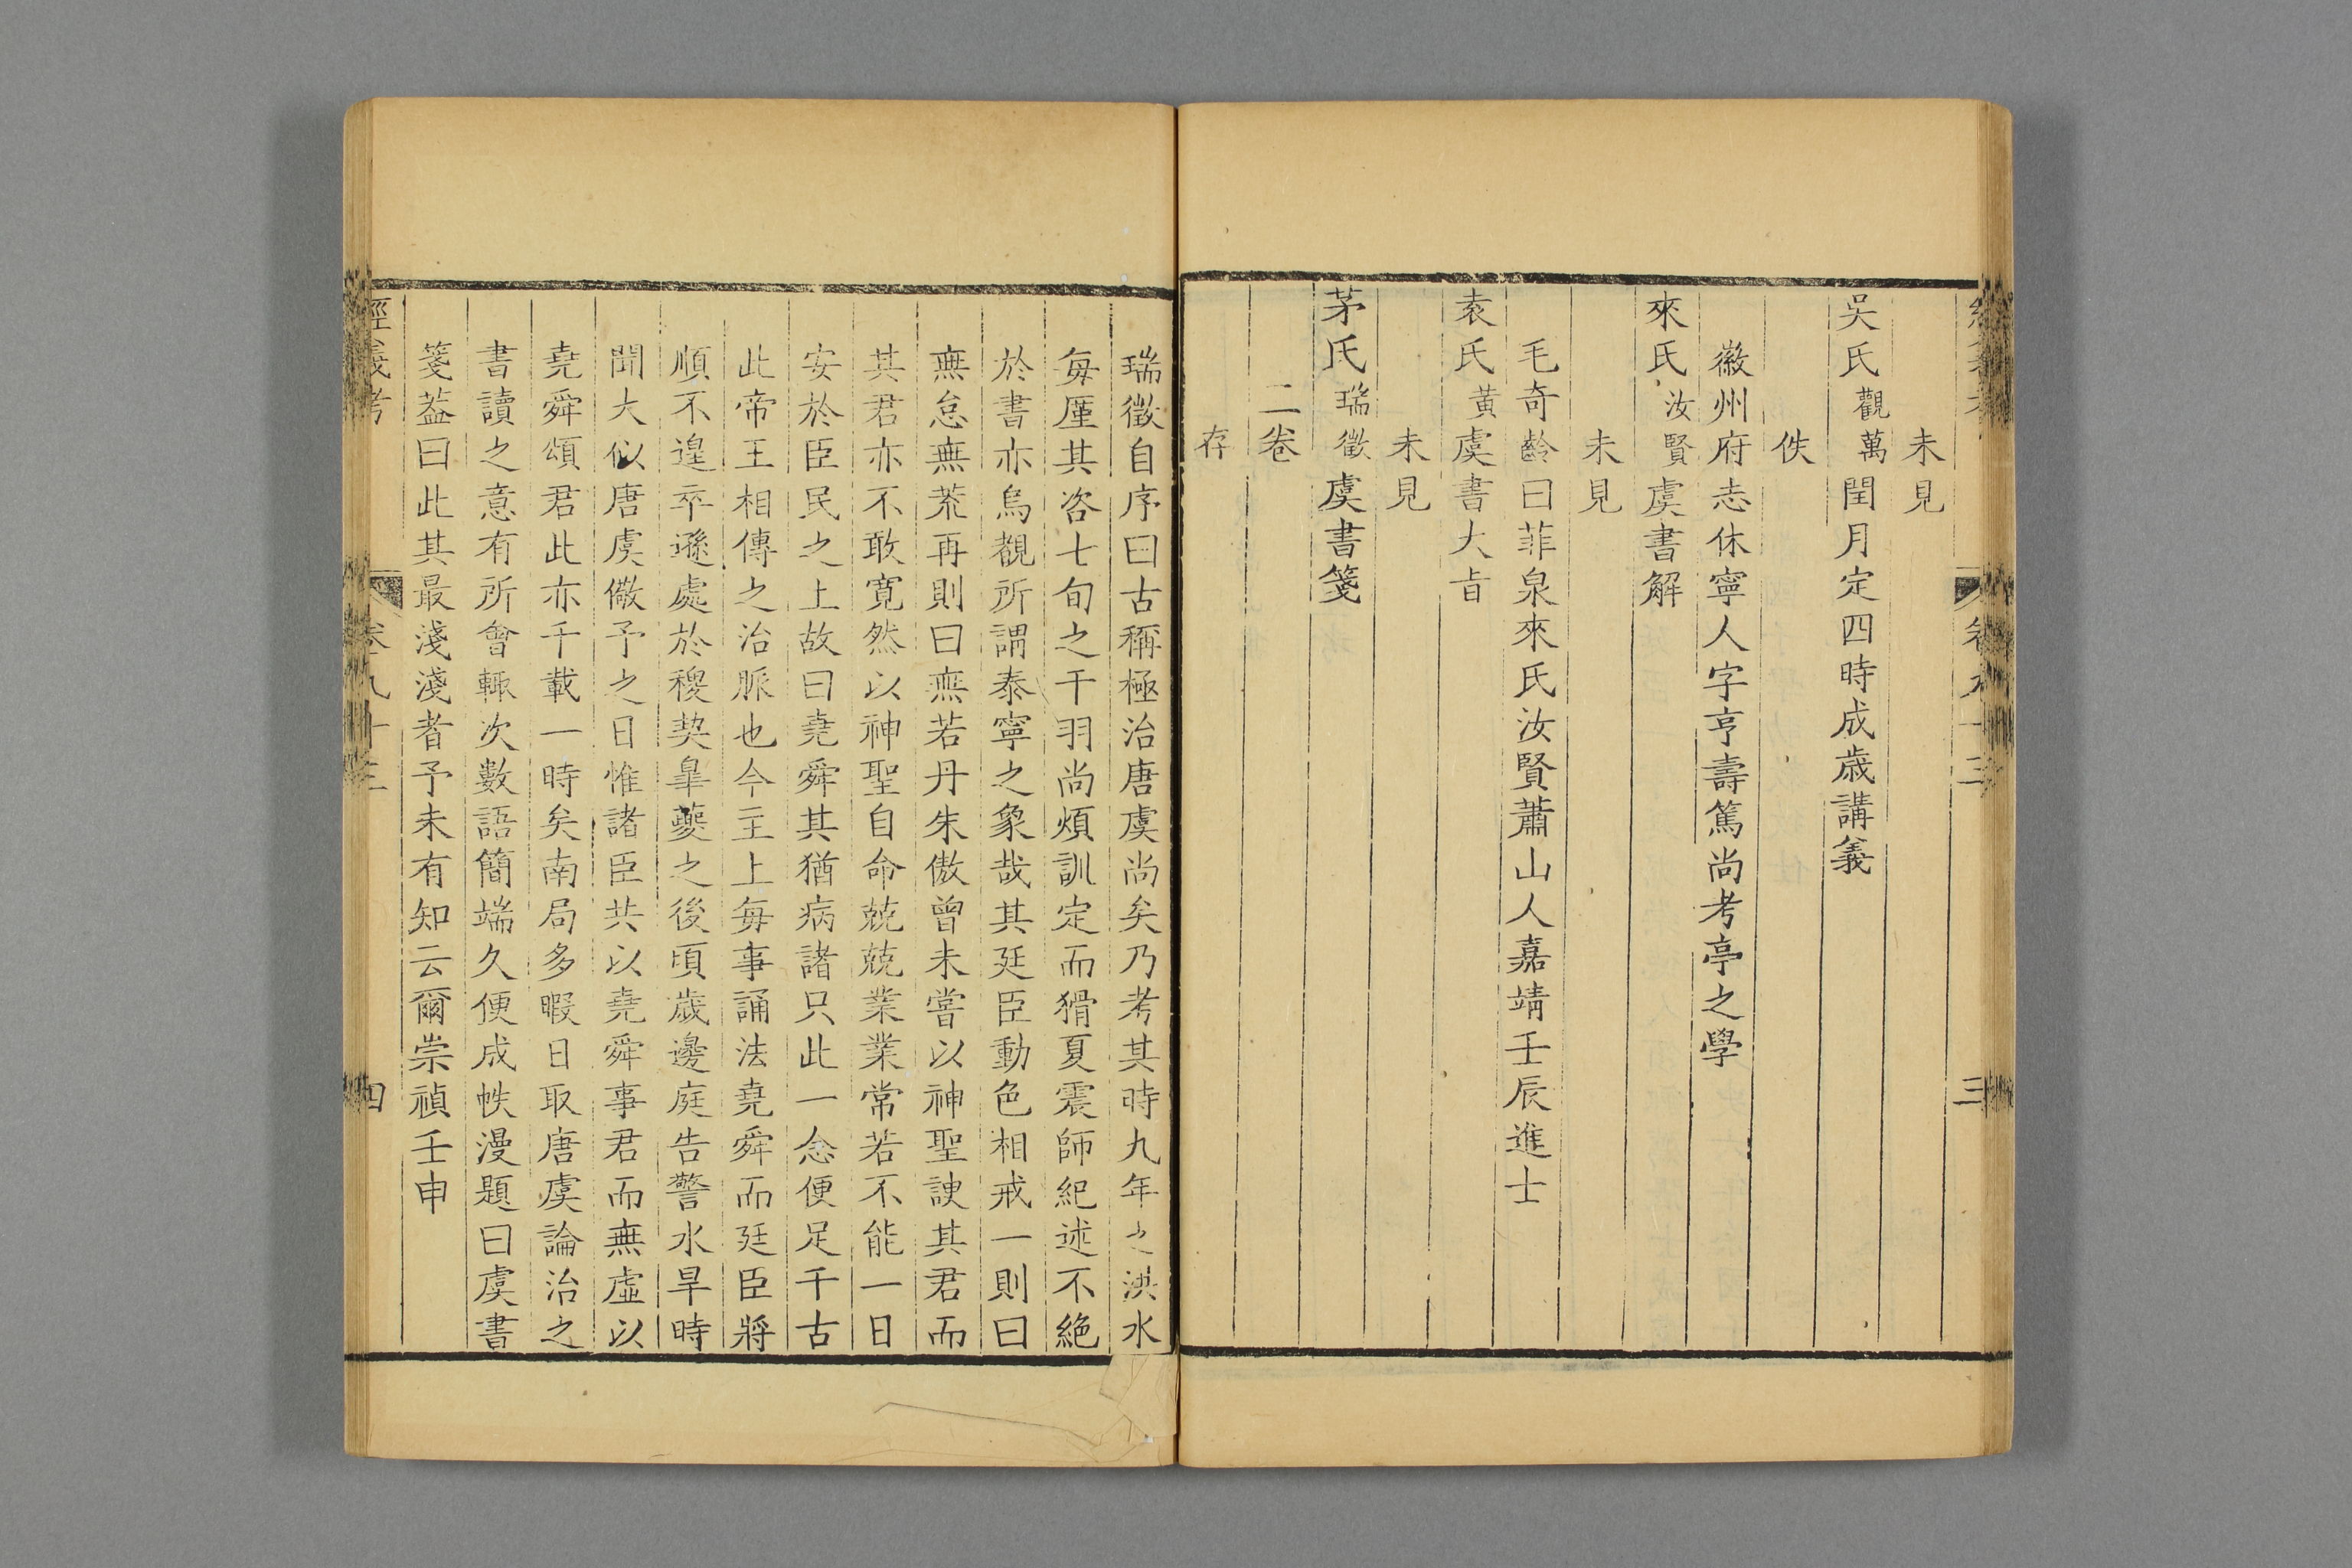 未見
吳氏觀萬閏月定四時成歳講義
佚
徽州府志休寧人字亨壽篤尚考亭之學
來氏汝賢虞書解
未見
毛奇齡曰菲泉來氏汝賢蕭山人嘉靖壬辰進士
袁氏黃虞書大旨
未見
茅氏瑞徵虞書箋
二卷
存
三
瑞徵自序曰古稱極治唐虞尚矣乃考其時九年之洪水
每厪其咨七旬之干羽尚煩訓定而猾夏震師紀述不絶
於書亦烏覩所謂泰寧之象哉其廷臣動色相戒一則曰
無怠無荒再則曰無若丹朱傲曾未嘗以神聖諛其君而
其君亦不敢寛然以神聖自命兢兢業業常若不能一日
安於臣民之上故曰堯舜其猶病諸只此一念便足千古
此帝王相傳之治脈也今主上每事誦法堯舜而廷臣將
順不遑卒遜處於稷契臯夔之後頃歲邊庭告警水旱時
聞大似唐虞儆予之日惟諸臣共以堯舜事君而無虛以
堯舜頌君此亦千載一時矣南局多暇日取唐虞論治之
書讀之意有所會輒次數語簡端久便成帙漫題曰虞書
箋葢曰此其最淺淺者予未有知云爾崇禎壬申
經義考 卷九十三 四